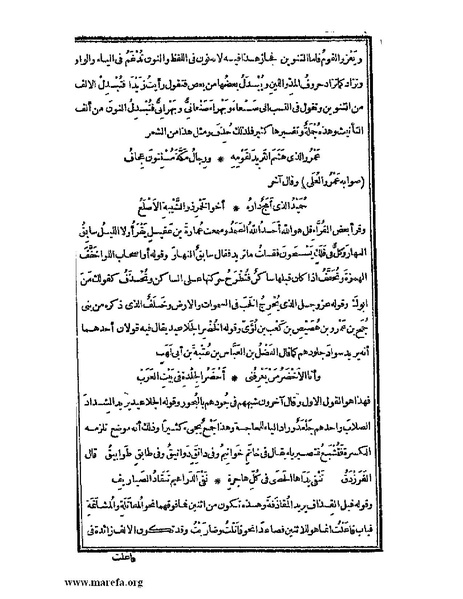 ويغزو القوم فاما التنوين فجاز هذا فيه لانه نون في اللفظ والنون تدغم في الياء والواو
وتزاد كما تزاد حروف المد واللين ويبدل بعضها من بعض فتقول رأيت زيدا فتبدل الالف
من التنوين وتقول في النسب الى صنعاء وبهراء صنعاني وبهراني فتبدل النون من ألف
التأنيث وهذه جملة وتفسيرها كثير فلذلك حذف ومثل هذا من الشعر
عمرو الذي هشم الثريد لقومه * ورجال مكة مسنتون عجاف
(صوابه عمرو العلى) وقال آخر
حميد الذي أمج داره * أخو الخمر ذو الشيبة الأصلع
وقرأ بعض القراء قل هو الله أحد الله الصمد وسمعت عمارة بن عقيل يقرأ ولا الليل سابق
النهار وكل في فلك يسبحون فقلت ما تريد فقال سابق النهار وقوله أو أصحاب اللوا خفف
الهمزة وتخفف اذا كان قبلها ساكن فتطرح حركتها على الساكن وتحذف كقولك من
ابوك وقوله عز وجل الذي يخرج الخب في السموات والارض وخلف الذي ذكره من بني
جمح بن عمرو بن هصيص بن كعب بن لؤي وقوله الخضر الجلاعيد يقال فيه قولان أحدهما
أنه يريد سواد جلودهم كما قال الفضل بن العباس بن عتبة بن أبي لهب
وأنا الأخضر من يعرفني * أخضر الجلدة في بيت العرب
فهذا هو القول الاول وقال آخرون شبههم في جودهم بالبحور وقوله الجلاعيد يريد الشداد
الصلاب واحدهم جلعد وزاد الياء للحاجة وهذا الجمع يجيء كثيرا وذلك أنه موضع تلزمه
الكسرة فتشبع فتصير ياء يقال في خاتم خواتيم وفي دانق دوانيق وفي طابق طوابيق قال
الفرزدق تنفي يداها الحصى في كل هاجرة * نفي الدراهيم تنقاد الصياريف
وقوله قبل القذاف يريد المقاذفة وهذه تكون من اثنين فما فوقهما نحو المقاتلة والمشاتمة
فباب فاعلت انما هو للاثنين فصاعدا نحو قاتلت وضاربت وقد تكون الالف زائدة في
فاعلت
www.marefa.org